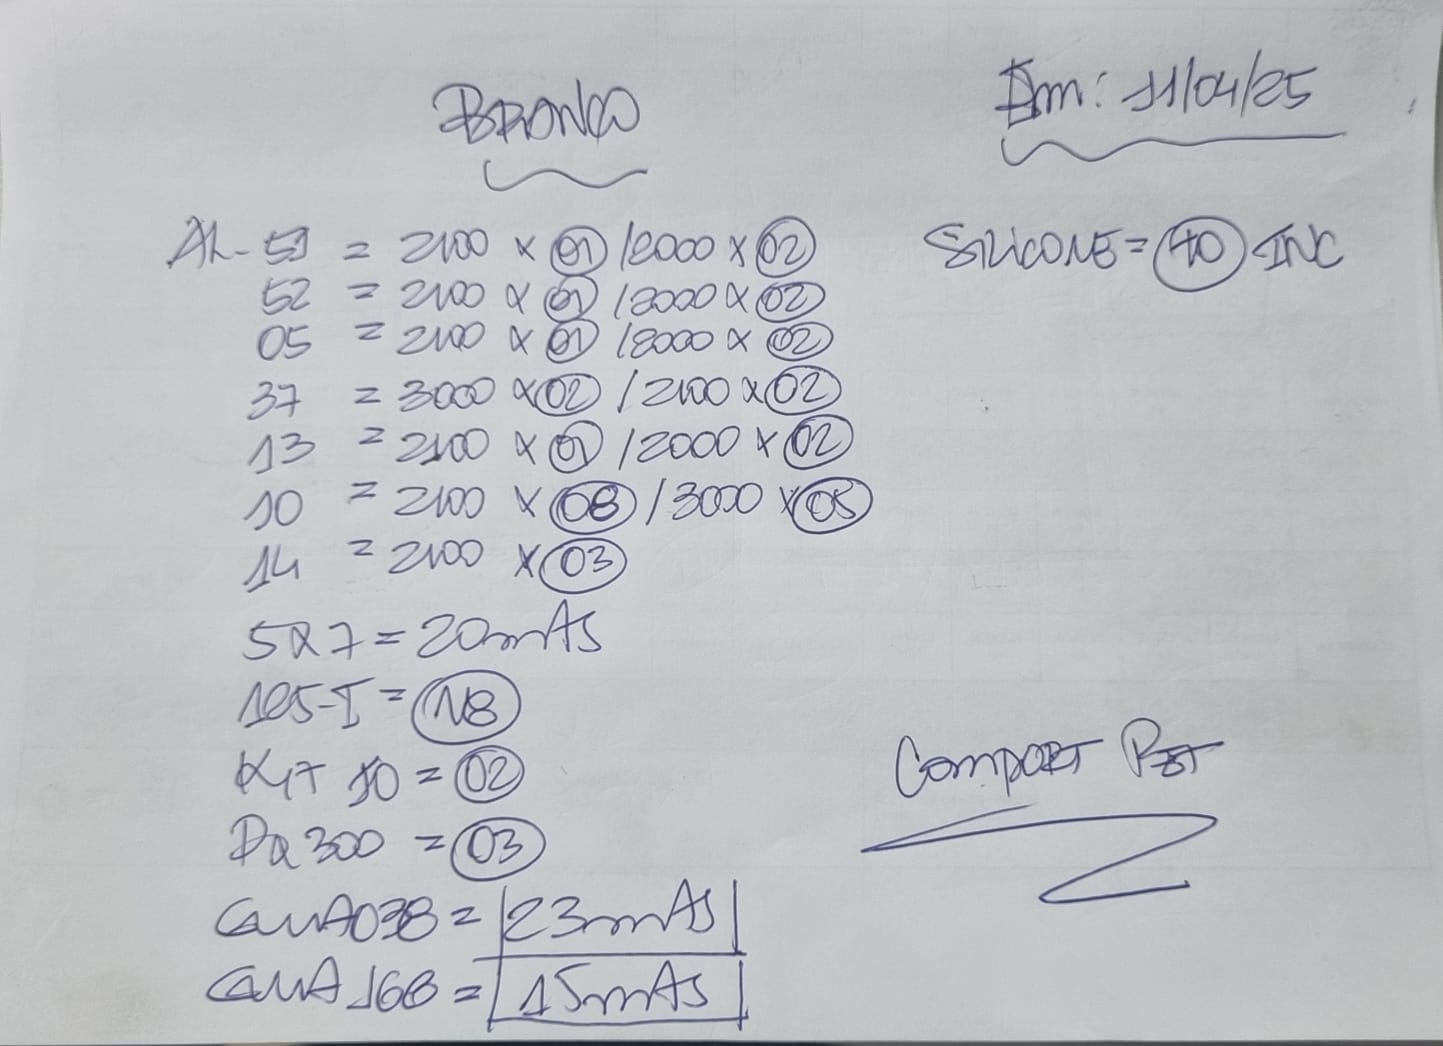 BRANCO
Em: 11/04/25
AL-51 = 2100 x 01 / 2000 x 02
SILICONE = 40 INC
52 = 2100 x 01 / 2000 x 02
05 = 2100 x 01 / 2000 x 02
37 = 3000 x 02 / 2100 x 02
13 = 2100 x 01 / 2000 x 02
10 = 2100 x 08 / 3000 x 05
14 = 2100 x 03
507 = 20mAs
105-I =
KIT 10 = 02
300 = 03
038 = 23mAs
168 = 15mAs